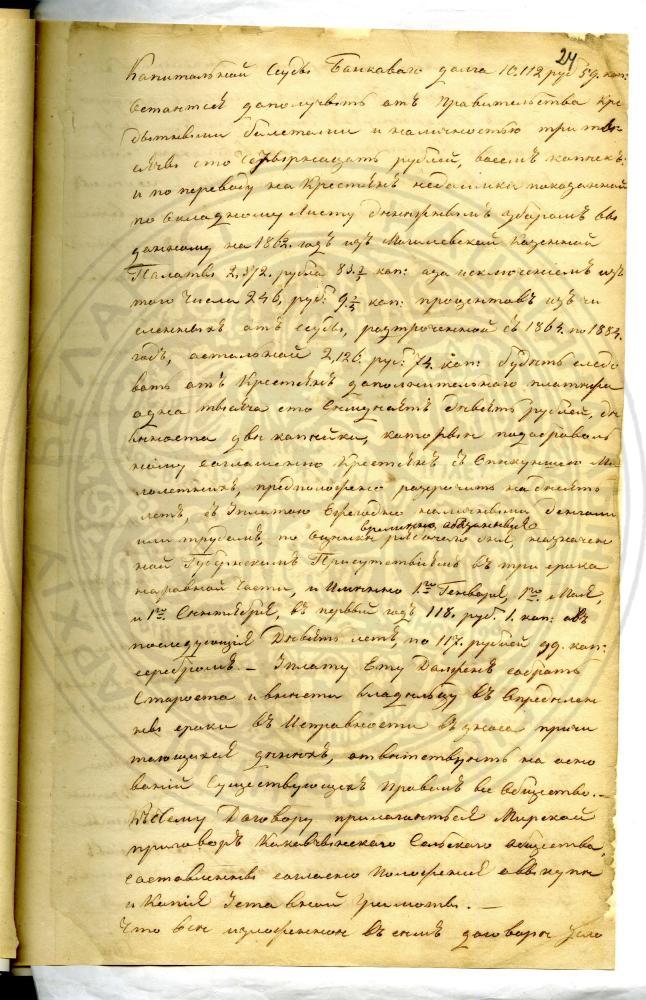 24
Капитальной Ссуды Банковаго долга 10.112 руб 59. коп:
Остаитсѣ дополучить отъ Правительства кре
дытными билетами и наличностью три ты
сячи сто Чѣтырнацать рублей, восем копѣекъ.
и по переводу на Крестьянъ недоимки показанной
по Окладному Листу дынежнымъ зборамъ вы
данному на 1862. годъ изъ Могилевской Казенной
Палаты 2,372. рубля 83. коп: а за исключеніемъ изъ
того Числа 246, руб: 9 коп: процентовъ изъ чи
сленныхъ отъ ссуды, разтроченной съ 1864. по 1884.
годъ, остальной 2,126. руб: 74. коп: будыть слѣдо
вать отъ Крестьянъ дополнительнаго платежа
одна тысяча сто Семдисятъ дывять рублей, ды
выноста двы копѣйки, которыи по добраволь
ному соглашенію Крестьянъ съ Опикуншею Ма
лолетнихъ, предположено разсрочить на дысять
летъ, съ Уплатою Ежегодно наличными деньгами
или трудамъ, по Оценки
временно обязаныхъ
рабочаго дня, назначен
ной Губернскимъ Присутствіемъ въ три срока
по ровной Части, и Имынно 1го Генваря, 1го Мая,
и 1го Сынтября, въ первый годъ 118. руб. 1. коп: а въ
послыдующія Дывять летъ, по 117. рублей 99. коп:
серебромъ. — Уплату Ету Должынъ собрать
Староста и внысти владельцу въ Опредылен
ны сроки въ Исправности
тающихся дынюх, отвытствуютъ на осно
ваніи Существующихъ Правилъ все Общество. —
Къ Сему Договору прилогаитьсѣ Мирской
приговоръ Сельского общества,
составленны согласно Положенія о выкупы
и Копія Уставной Грамоты. —
Что всы изложенное въ семъ договоры